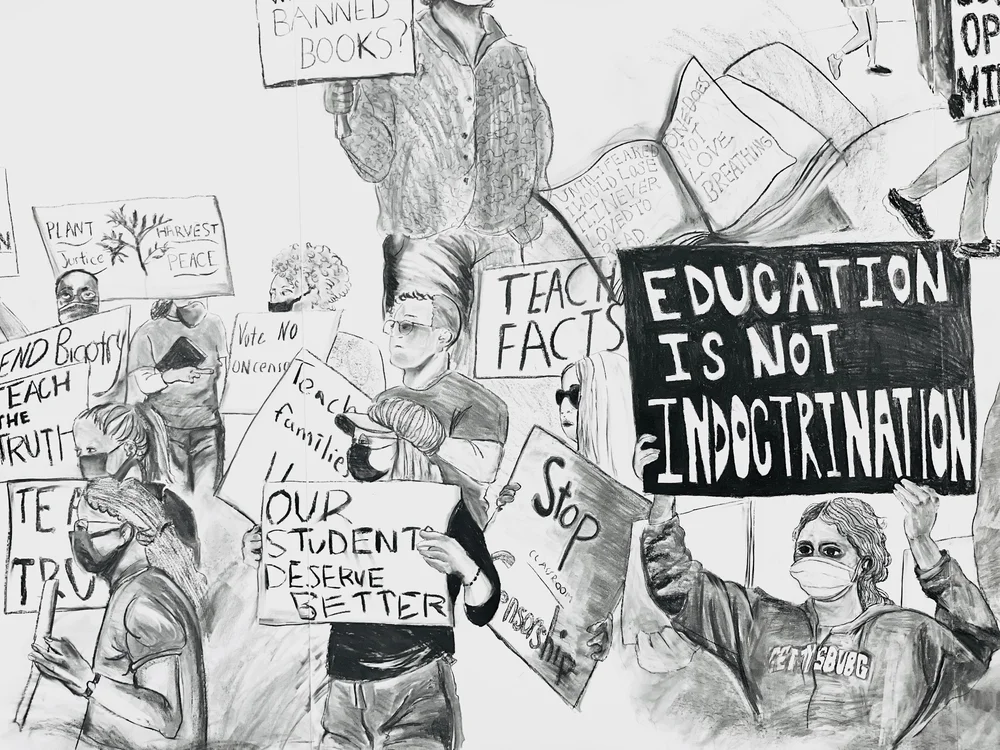 BANNED
BOOKS?
OP
MI
UNTIL I FEARED
I WOULD LOSE
IT I NEVER
LOVED TO
READ
ONE DOES
NOT
LOVE
BREATHING
PLANT
Justice
HARVEST
PEACE
END Bigotry
TEACH
THE
TRUTH
Vote NO
ON censo
TEACH
FACTS
EDUCATION
IS NOT
INDOCTRINATION
Teach
familie
TEA
TRU
OUR
STUDENT
DESERVE
BETTER
Stop
CLASSROOM
ensorship
GETTYSBURG